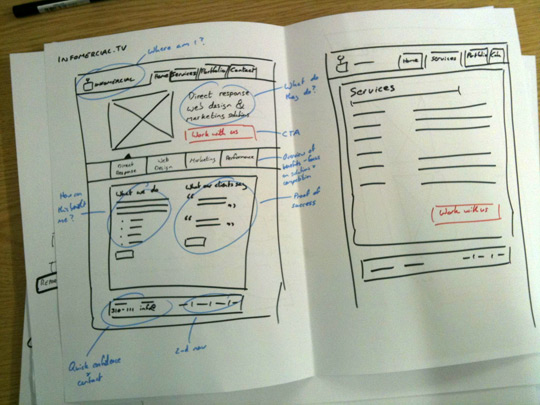 INFOMERCIAL.TV
Where am I?
INFOMERCIAL
Home Services Portfolio Contact
Direct response
web design &
marketing solutions
What do
they do?
Work with us
CTA
Direct
Response
Web
Design
Marketing
Performance
Overview of
benefits - focus
on solutions +
competition
How can
this benefit
me?
What we do
What our clients say
Proof of
success
info@
Quick confidence
+ contact
2nd nav
Home Services Portfolio
Services
Work with us